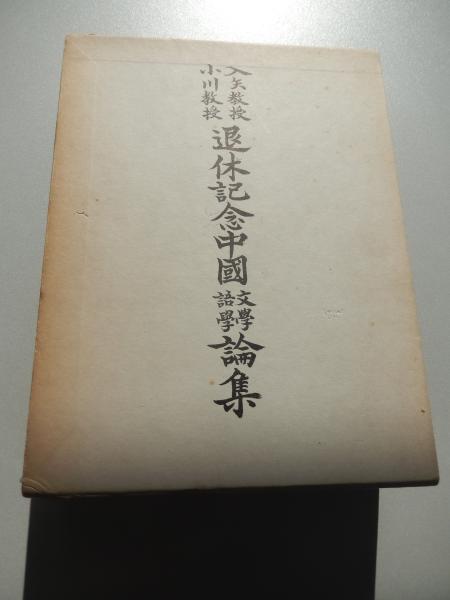 入矢教授
小川教授
退休記念中國
文學
語學
論集